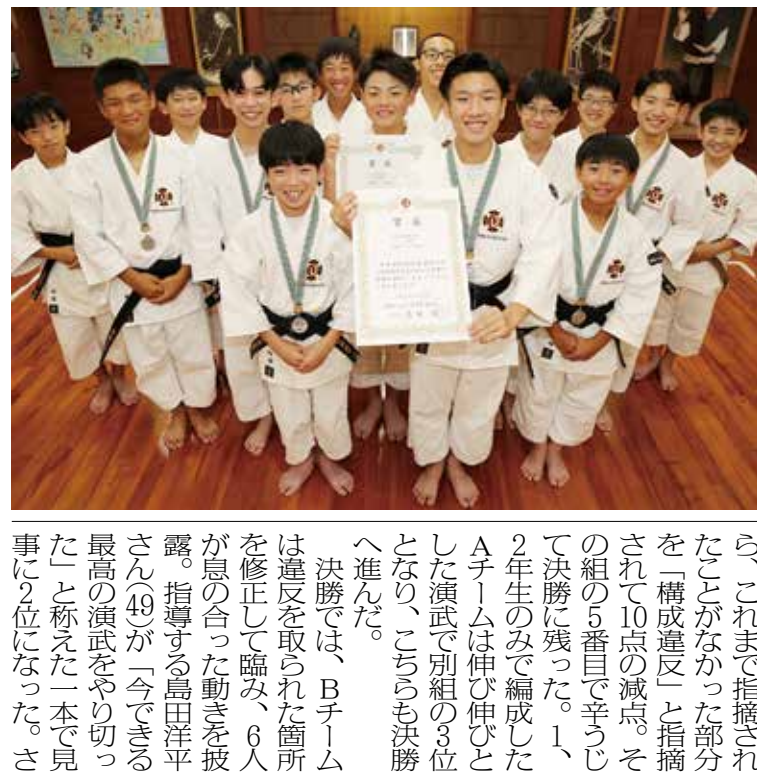 賞状
賞状
ら、これまで指摘され
たことがなかった部分
を「構成違反」と指摘
されて10点の減点。そ
の組の5番目で辛うじ
て決勝に残った。1、
2年生のみで編成した
Aチームは伸び伸びと
した演武で別組の3位
となり、こちらも決勝
へ進んだ。
決勝では、Bチーム
は違反を取られた箇所
を修正して臨み、6人
が息の合った動きを披
露。指導する島田洋平
さん(49)が「今できる
最高の演武をやり切っ
た」と称えた一本で見
事に2位になった。さ